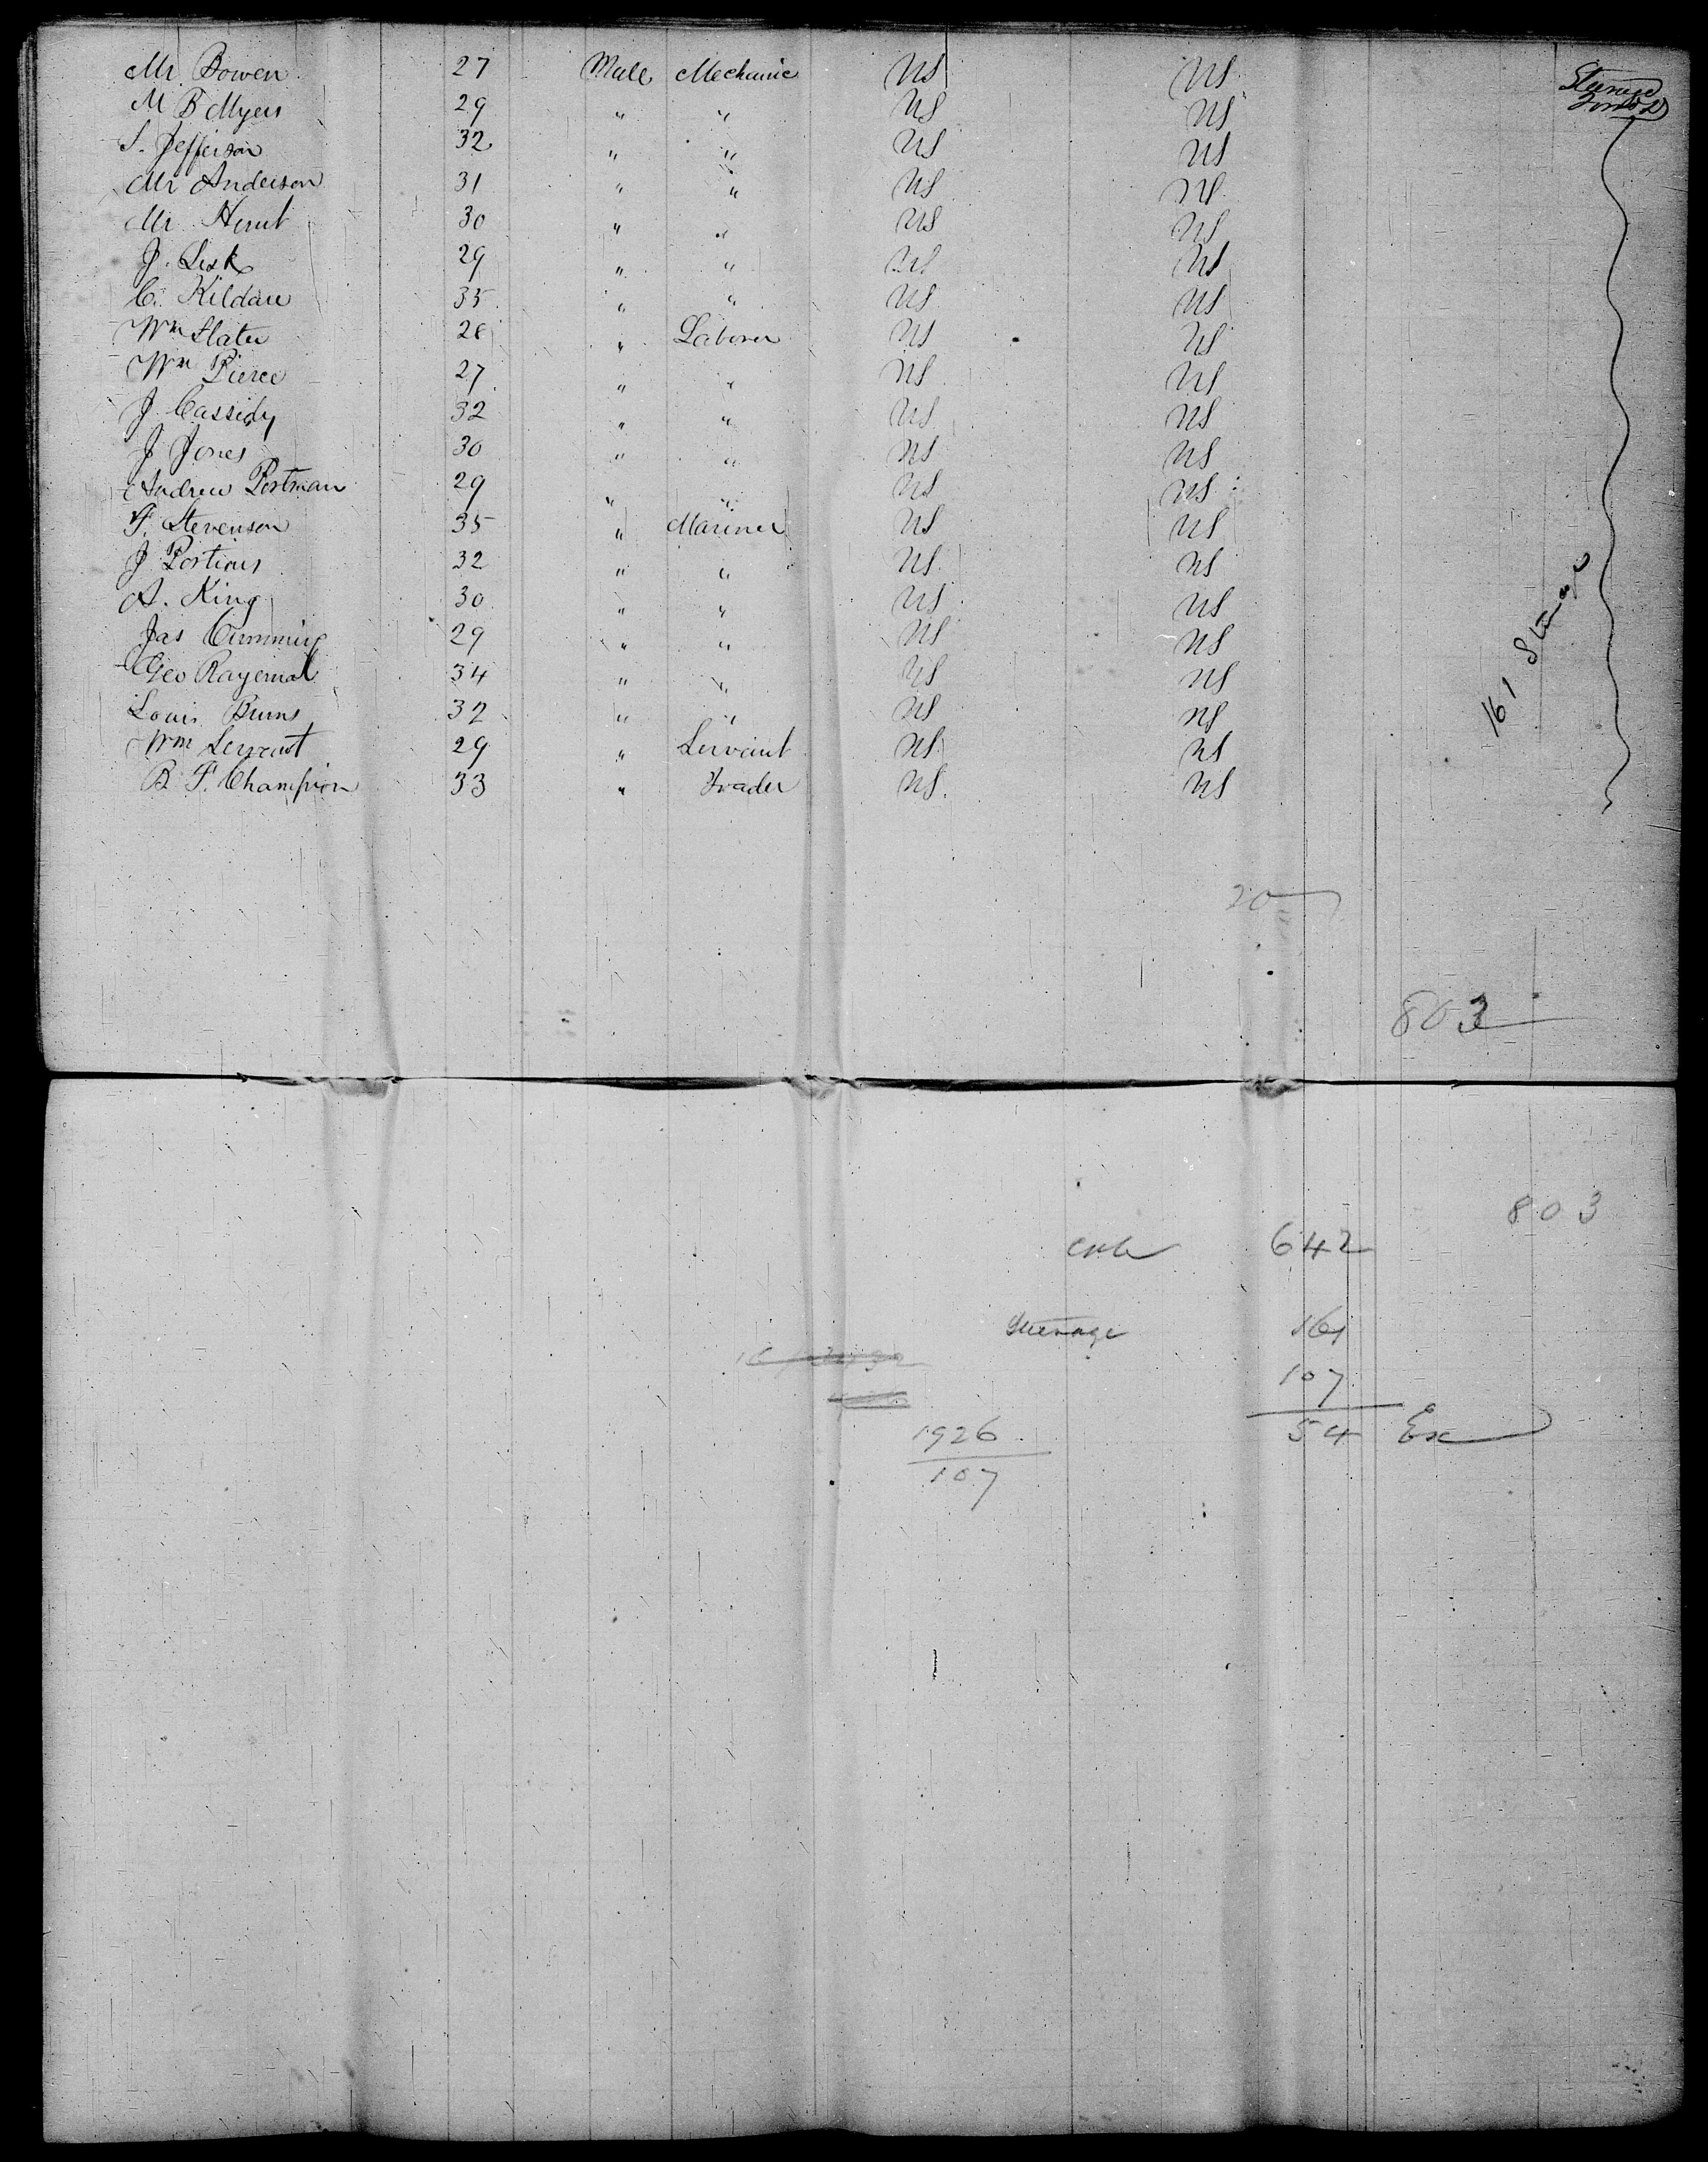 Mr Bowen 27 Male Mechanic US US Steerage
M B Myers 29 " " US US
S. Jefferson 32 " " US US
Mr Anderson 31 " " US US
Mr Hunt 30 " " US US
J. Lisk 29 " " US US
C. Kildare 35 " " US US
Wm Slater 28 " Laborer US US
Wm Pierce 27 " " US US
J. Cassidy 32 " " US US
J Jones 30 " " US US
Andrew Portman 29 " " US US
F. Stevenson 35 " Mariner US US
J Portious 32 " " US US
A. King 30 " " US US
Jas Cumming 29 " " US US
Geo 34 " " US US
Louis Burns 32 " " US US
Wm Servant 29 " Servant US US
B. F. Champion 33 " Trader US US
161 Steerage
20
803
803
642
Steerage 161
107
1926 54 Ex
107